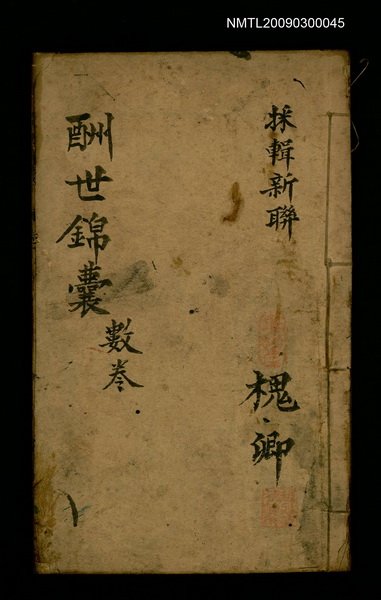 NMTL20090300045
採輯新聯
槐卿
酬世錦囊
數卷